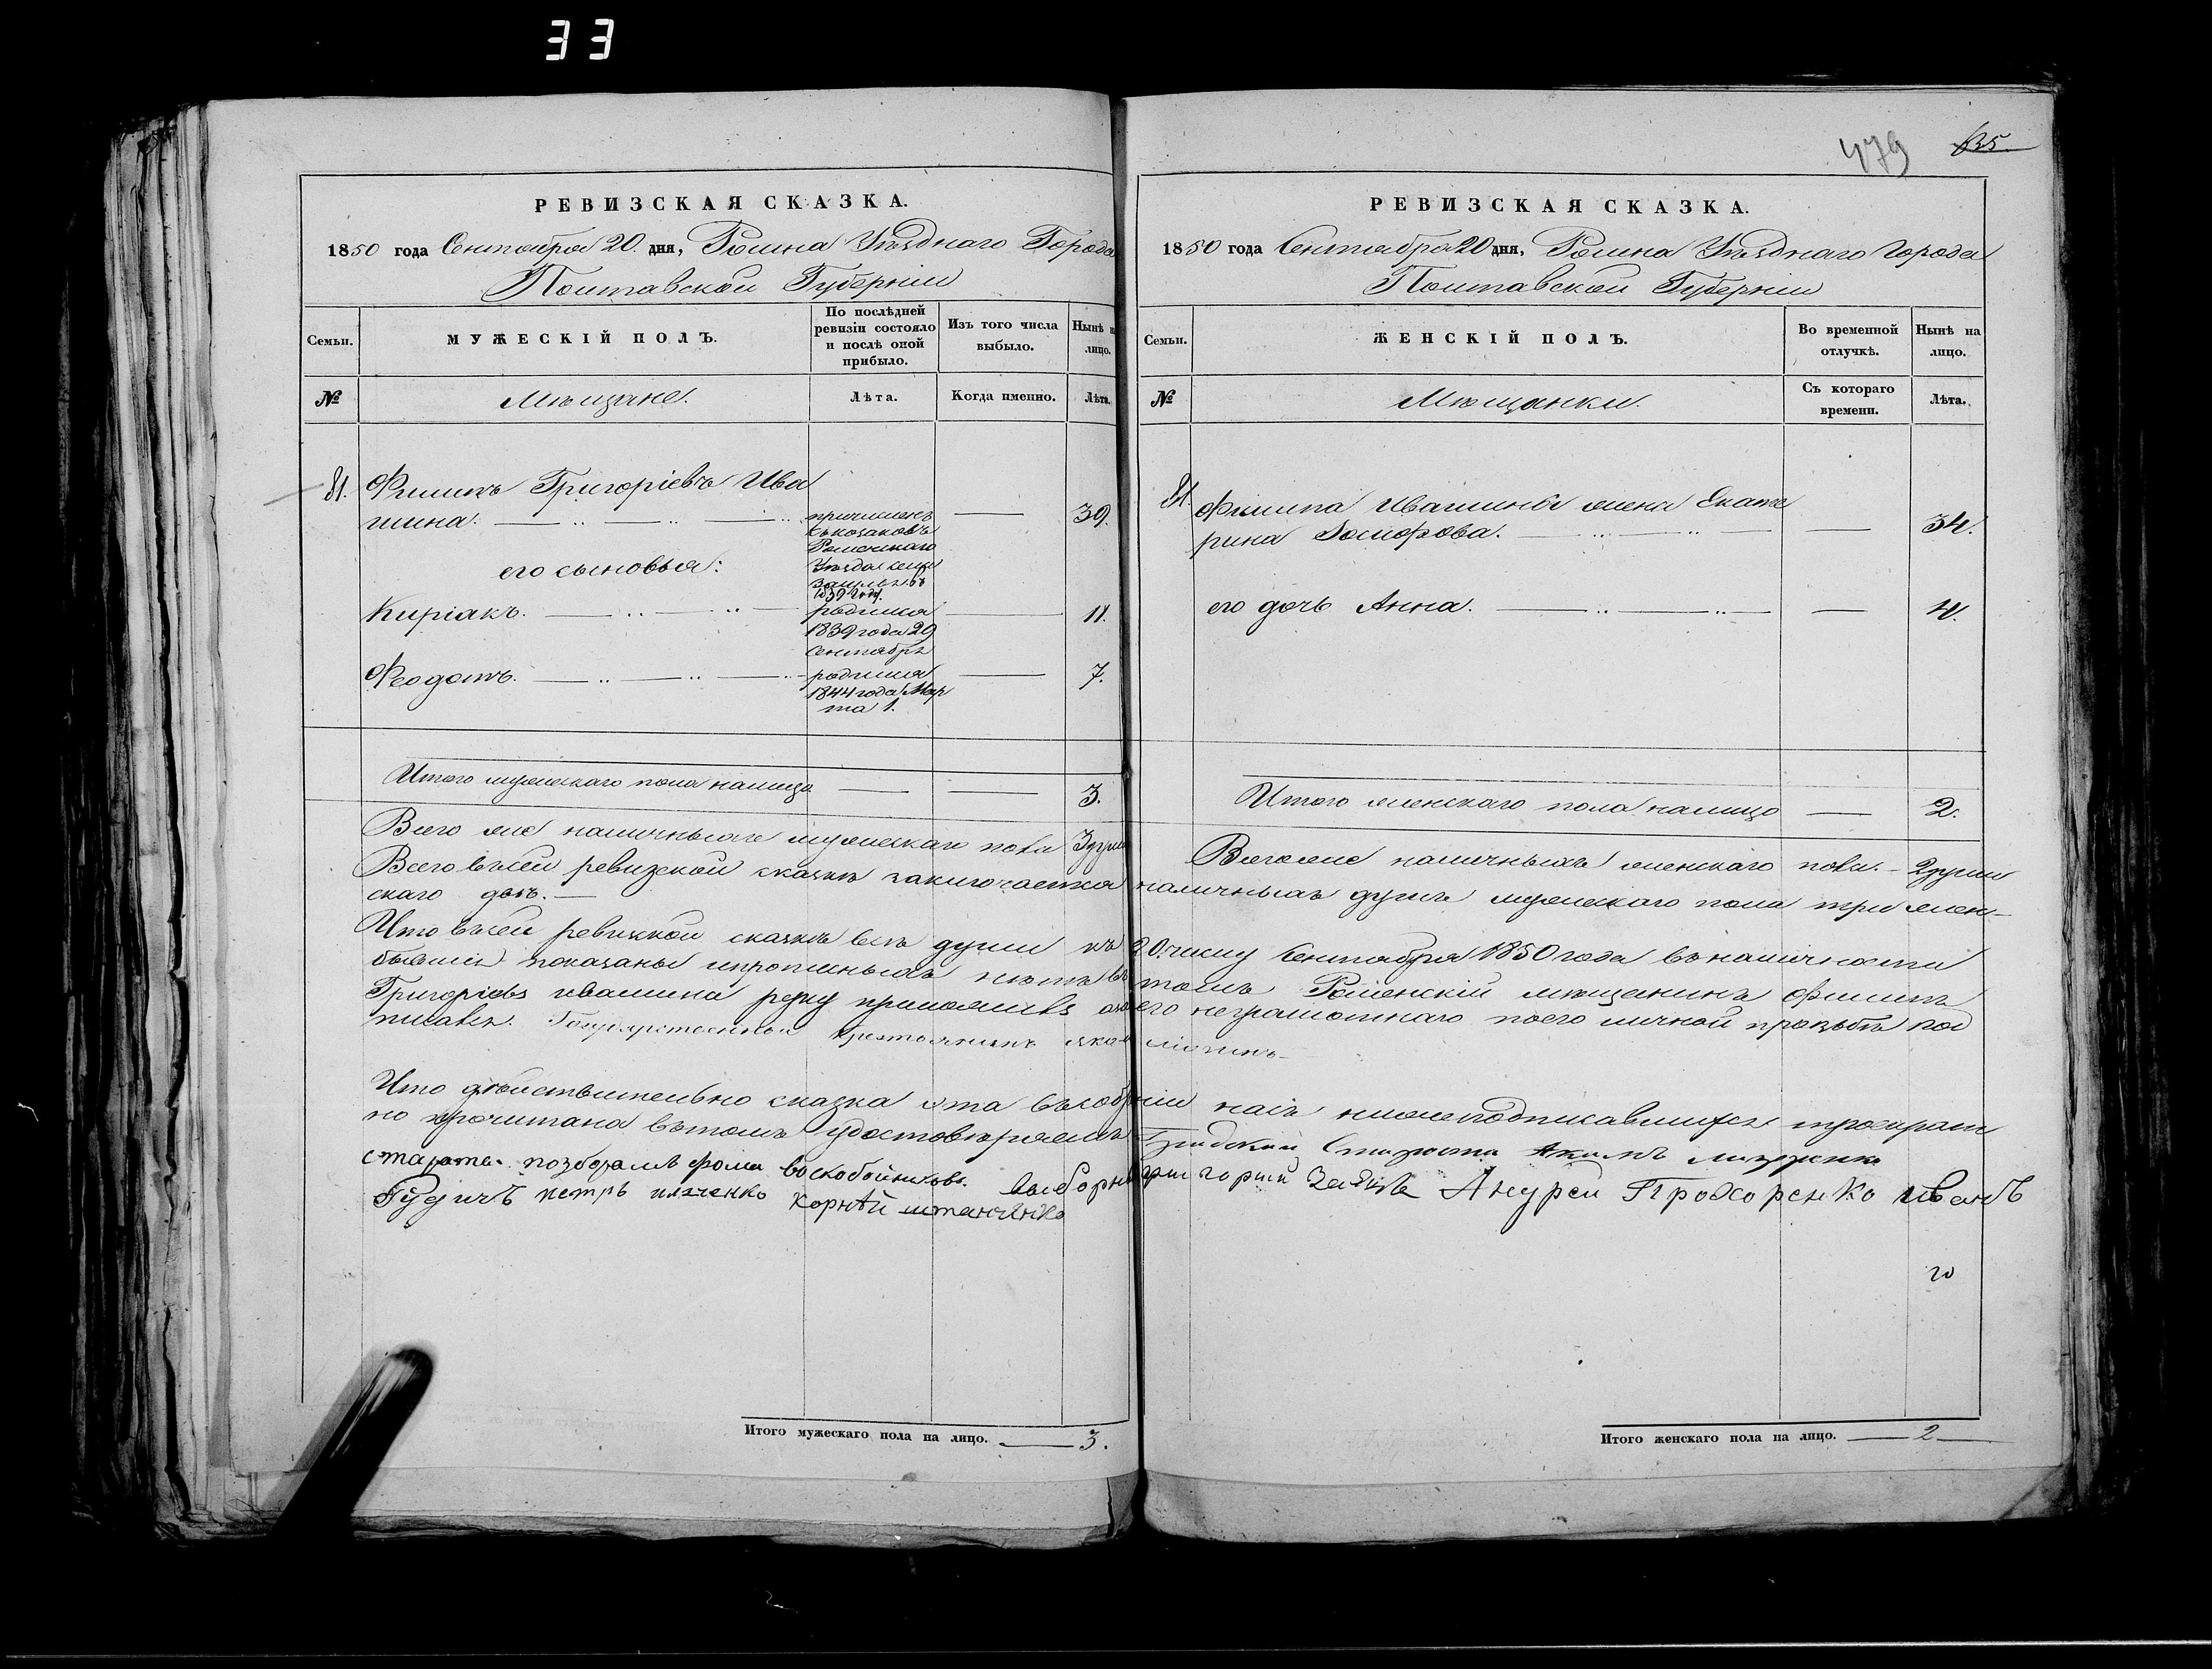 33
РЕВИЗСКАЯ СКАЗКА.
1850 года Сентября 20. дня, Ромна Уѣзднаго Города
Полтавской Губерніи
Семьи.
МУЖЕСКІЙ ПОЛЪ.
По послѣдней ревизіи состояло и послѣ оной прибыло.
Изъ того числа выбыло.
Нынѣ на лицо.
№
Мѣщане.
Лѣта.
Когда именно.
Лѣта.
81. Филипъ Григорьевъ Ива
шина. причисленъ 39.
съ козаковъ
Роменскаго
Уѣзда села
1839 году.
его сыновья:
Киріакъ. родился 11.
1839 года 29
Сентября
Феодотъ. родился 7.
1844 года Мар
та 1.
Итого мужескаго пола налицо 3.
Всего же наличныхъ мужескаго пола 3 души
479 635.
РЕВИЗСКАЯ СКАЗКА.
1850 года Сентября 20 дня, Ромна Уѣзднаго Города
Полтавской Губерніи
Семьи.
ЖЕНСКІЙ ПОЛЪ.
Во временной отлучкѣ.
Нынѣ на лицо.
№
Мѣщанки.
Съ котораго времени.
Лѣта.
81. Филипа Ивашины жена Екате
рина 34.
его дочь Анна. 4.
Итого женскаго пола налицо 2.
Всего же наличныхъ женскаго пола. 2 души
Всего въ сей ревизской сказкѣ заключается наличныхъ душъ мужескаго пола три жен-
скаго двѣ.
Что въ сей ревизкой сказкѣ всѣ души къ 20. числу Сентября 1850 года въ наличности
бывшія показаны и прописныхъ нѣтъ въ томъ Роменскій мѣщанинъ Филипъ
Григорьевъ Ивашина руку приложилъ а за его неграмотнаго по его личной прозьбѣ под
писался. Государственной крестьянинъ
Что дѣйствительно сказка эта въ собраніи насъ нижеподписавшихся троекрат
но прочитана въ томъ удостовѣряемъ Градскій Староста Акимъ
старосты. Фома Воскобойниковъ. выборные григорій Заяцъ Андрей Прохоренко иванъ
Гудичъ петръ корнѣй
Итого мужескаго пола на лицо. 3.
Итого женскаго пола на лицо. 2